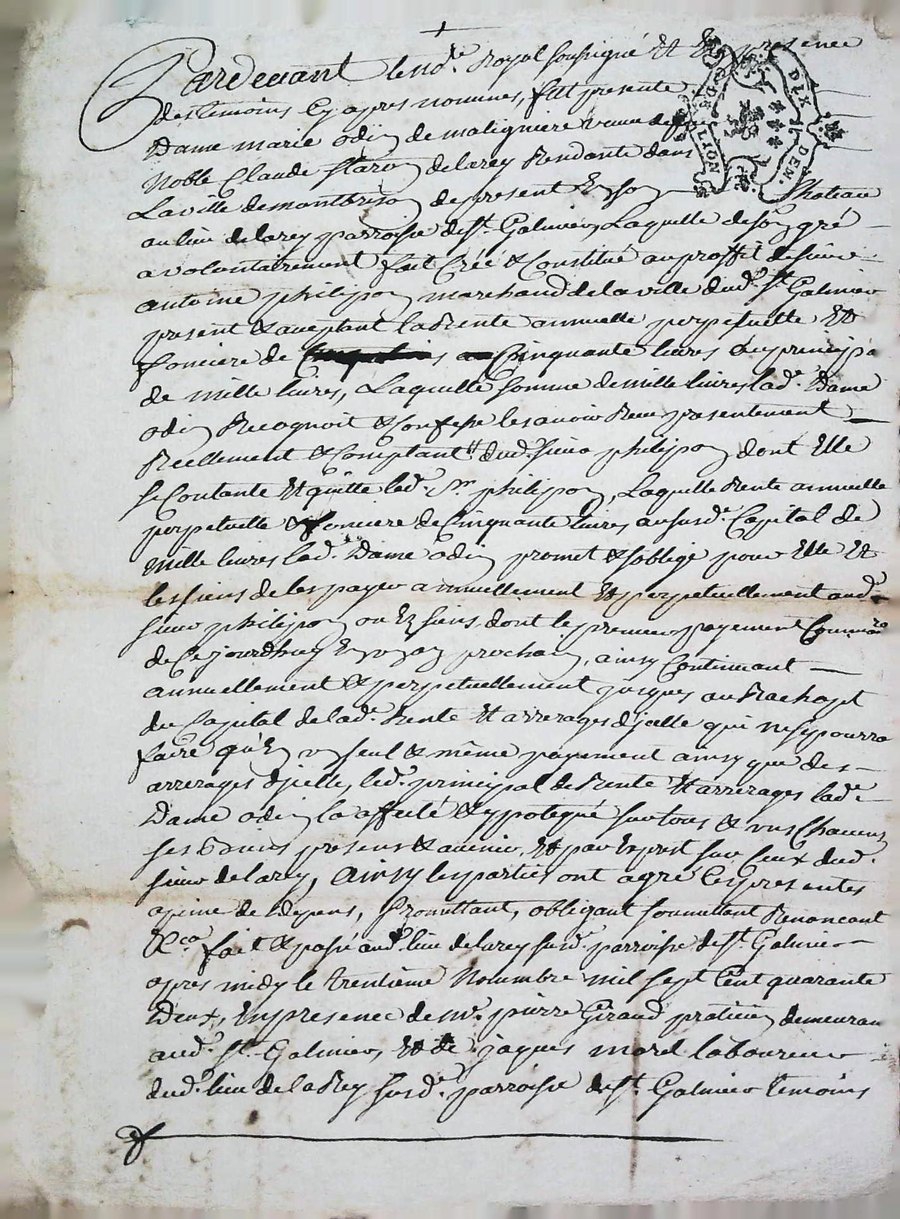 Pardevant le no.re Royal soussigné Et En presence
des temoins Cy apres nommés, fut presente
Dame marie odin de maligniere veuve de
Noble Claude staron de larey Residante dans
La ville de montbrison de present En son Chateau
au lieu de larey parroisse de st. Galmier, Laquelle de son gré
a volontairement fait Créé & Constitué au proffit de sieur
antoine philipon marchand de la ville dud. st Galmier
present & aceptant la Rente annuelle perpetuelle Et
fonciere de Cinquante livres au principal
de mille livres, Laquelle somme de mille livres, lad. Dame
odin Recognoit & Confesse les avoir Reçu presentement
Reellement & Comptant dud. sieur philipon dont Elle
se Contante Et quitte led. Sr. philipon, Laquelle Rente annuelle
perpetuelle & fonciere de Cinquante livres au susd. Capital de
mille livres lad. Dame odin promet & soblige pour Elle Et
les siens de les payer annuellement Et perpetuellement aud.
sieur philipon ou Es siens, dont le premier payement
de Cejourdhuy En un an prochain, ainsy Continuant
annuellement & perpetuellement jusques au Rachapt
du Capital de lad. Rente Et arrerages djcelle qui ne se pourra
faire qu'En un seul & même payement ainsy que des
arrerages djcelle, led. principal de Rente Et arrerages lad.
Dame odin la affecté & ypotequé sur tous & uns Chacuns
ses Biens presens & avenir, Et par Exprest sur Ceux dud.
sieur de larey, Ainsy les parties ont agréé Ces presentes
a peine de depens, Promettant, obligeant soumettant Renoncant
&ca fait & passé aud. lieu de larey susd. parroisse de st. Galmier
apres midy le trentieme Novembre mil sept Cent quarante
Deux, En presence de me. pierre Giraud praticien demeurant
aud. st. Galmier, Et de jaques morel laboureur
dud. lieu de la Rey susd. parroisse de st. Galmier temoins
G. DE LYON
DIX DEN.